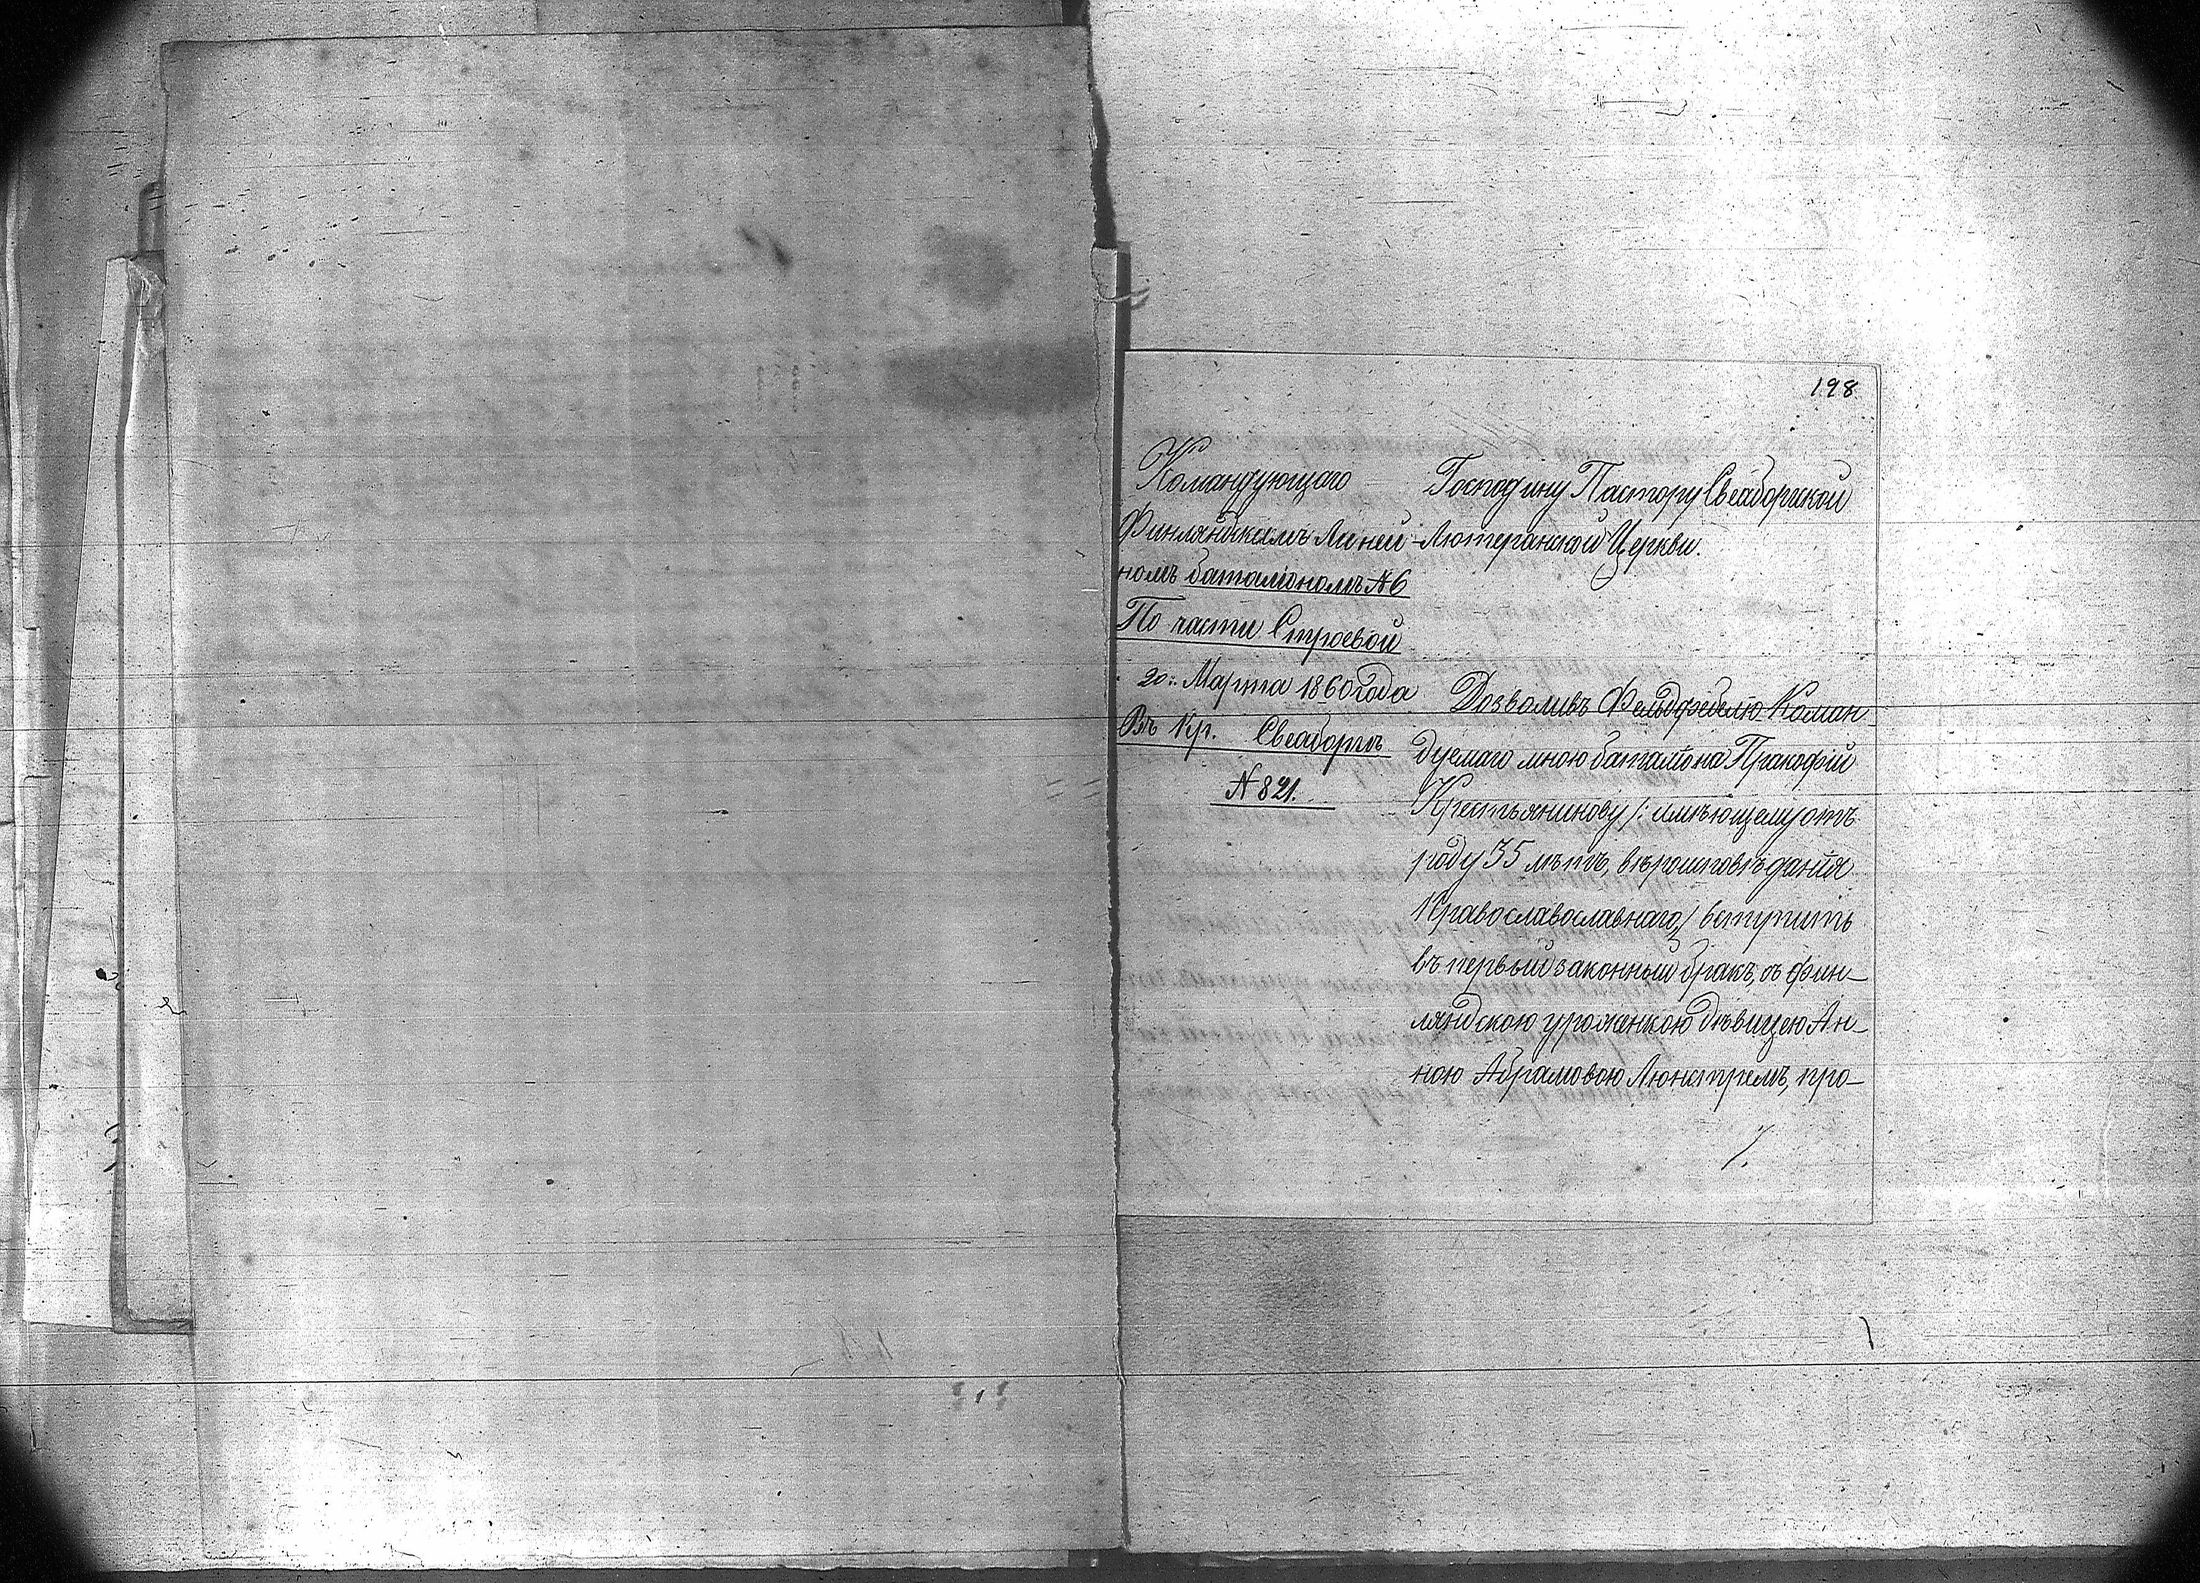 198
Командующаго
Финляндскимъ Линей-
номъ баталіономъ №6
По части Строевой
20. Марта 1860 года
Въ Кр. Свеаборгъ
№ 821.
Господину Пастору Свеаборгской
Лютеранской Церкви.
Дозволивъ Фельдфебелю Коман-
дуемаго мною баталіона Пракофій
Крестьянинову /: имѣющему отъ
роду 35 лѣтъ, вѣроисповѣданія
Православославнаго,/ вступить
въ первый законный бракъ, съ фин-
ляндскою уроженкою дѣвицею Ан-
ною Абрамовою Люнстремъ, про-
/.